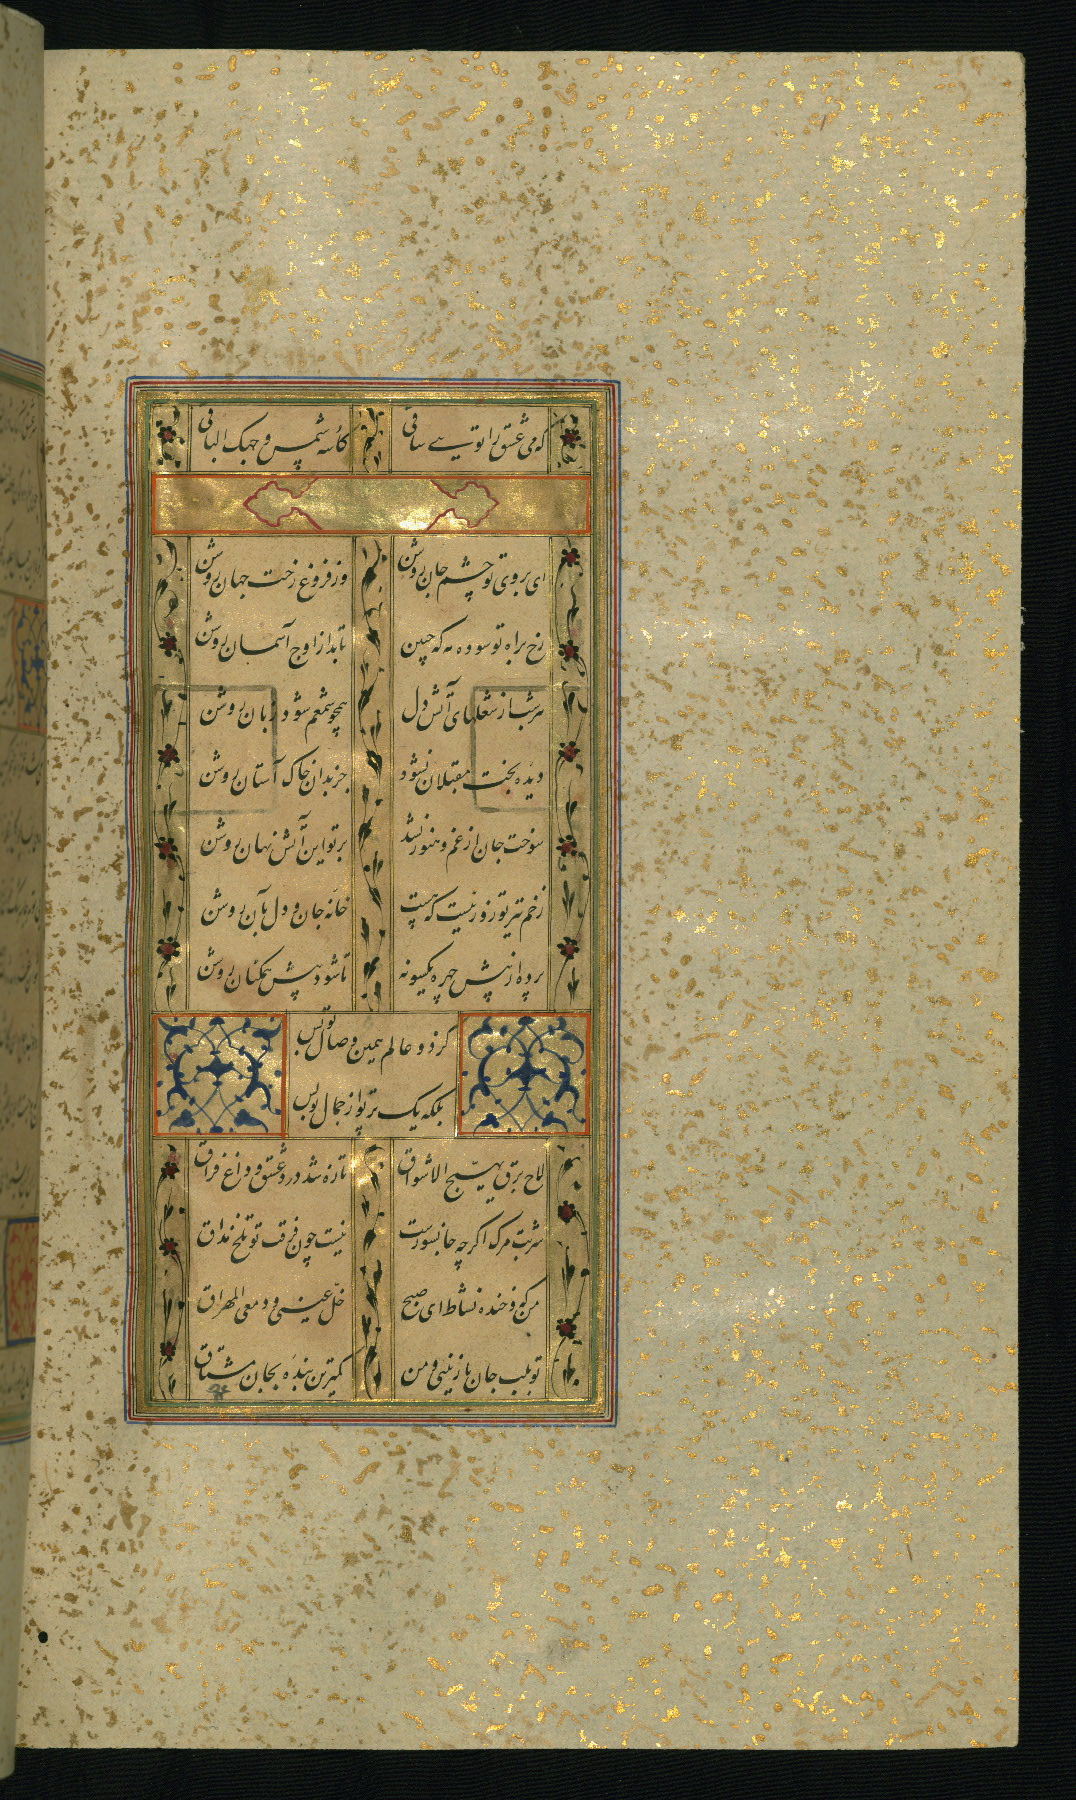 که می عشق را تویی ساقی
کأسه شمس وجهک الباقی
ای بروی تو چشم جان روشن
وز فروغ رخت جهان روشن
رخ براه تو سوده مه که چنین
تابد از اوج آسمان روشن
هر شب از شعلهای آتش دل
همچو شمعم شود زبان روشن
دیده بخت مقبلان نشود
جز بدان خاک آستان روشن
سوخت جان از غم و هنوز نشد
بر تو این آتش نهان روشن
زخم تیر تو روزنیست که هست
خانه جان و دل بآن روشن
پرده از پیش چهره یکسو نه
تا شود پیش همکنان روشن
کز دو عالم همین وصال تو بس
بلکه یک پرتو از جمال تو بس
لاح برق یهیج الاشواق
تازه شد درد عشق و داغ فراق
شربت مرک اکر چه جانسوزست
نیست چون فرقت تو تلخ مذاق
من که و خنده نشاط ای صبح
خل عینی و دمعی المهراق
تو بلب جان نازنینی و من
کمترین بنده بجان مشتاق